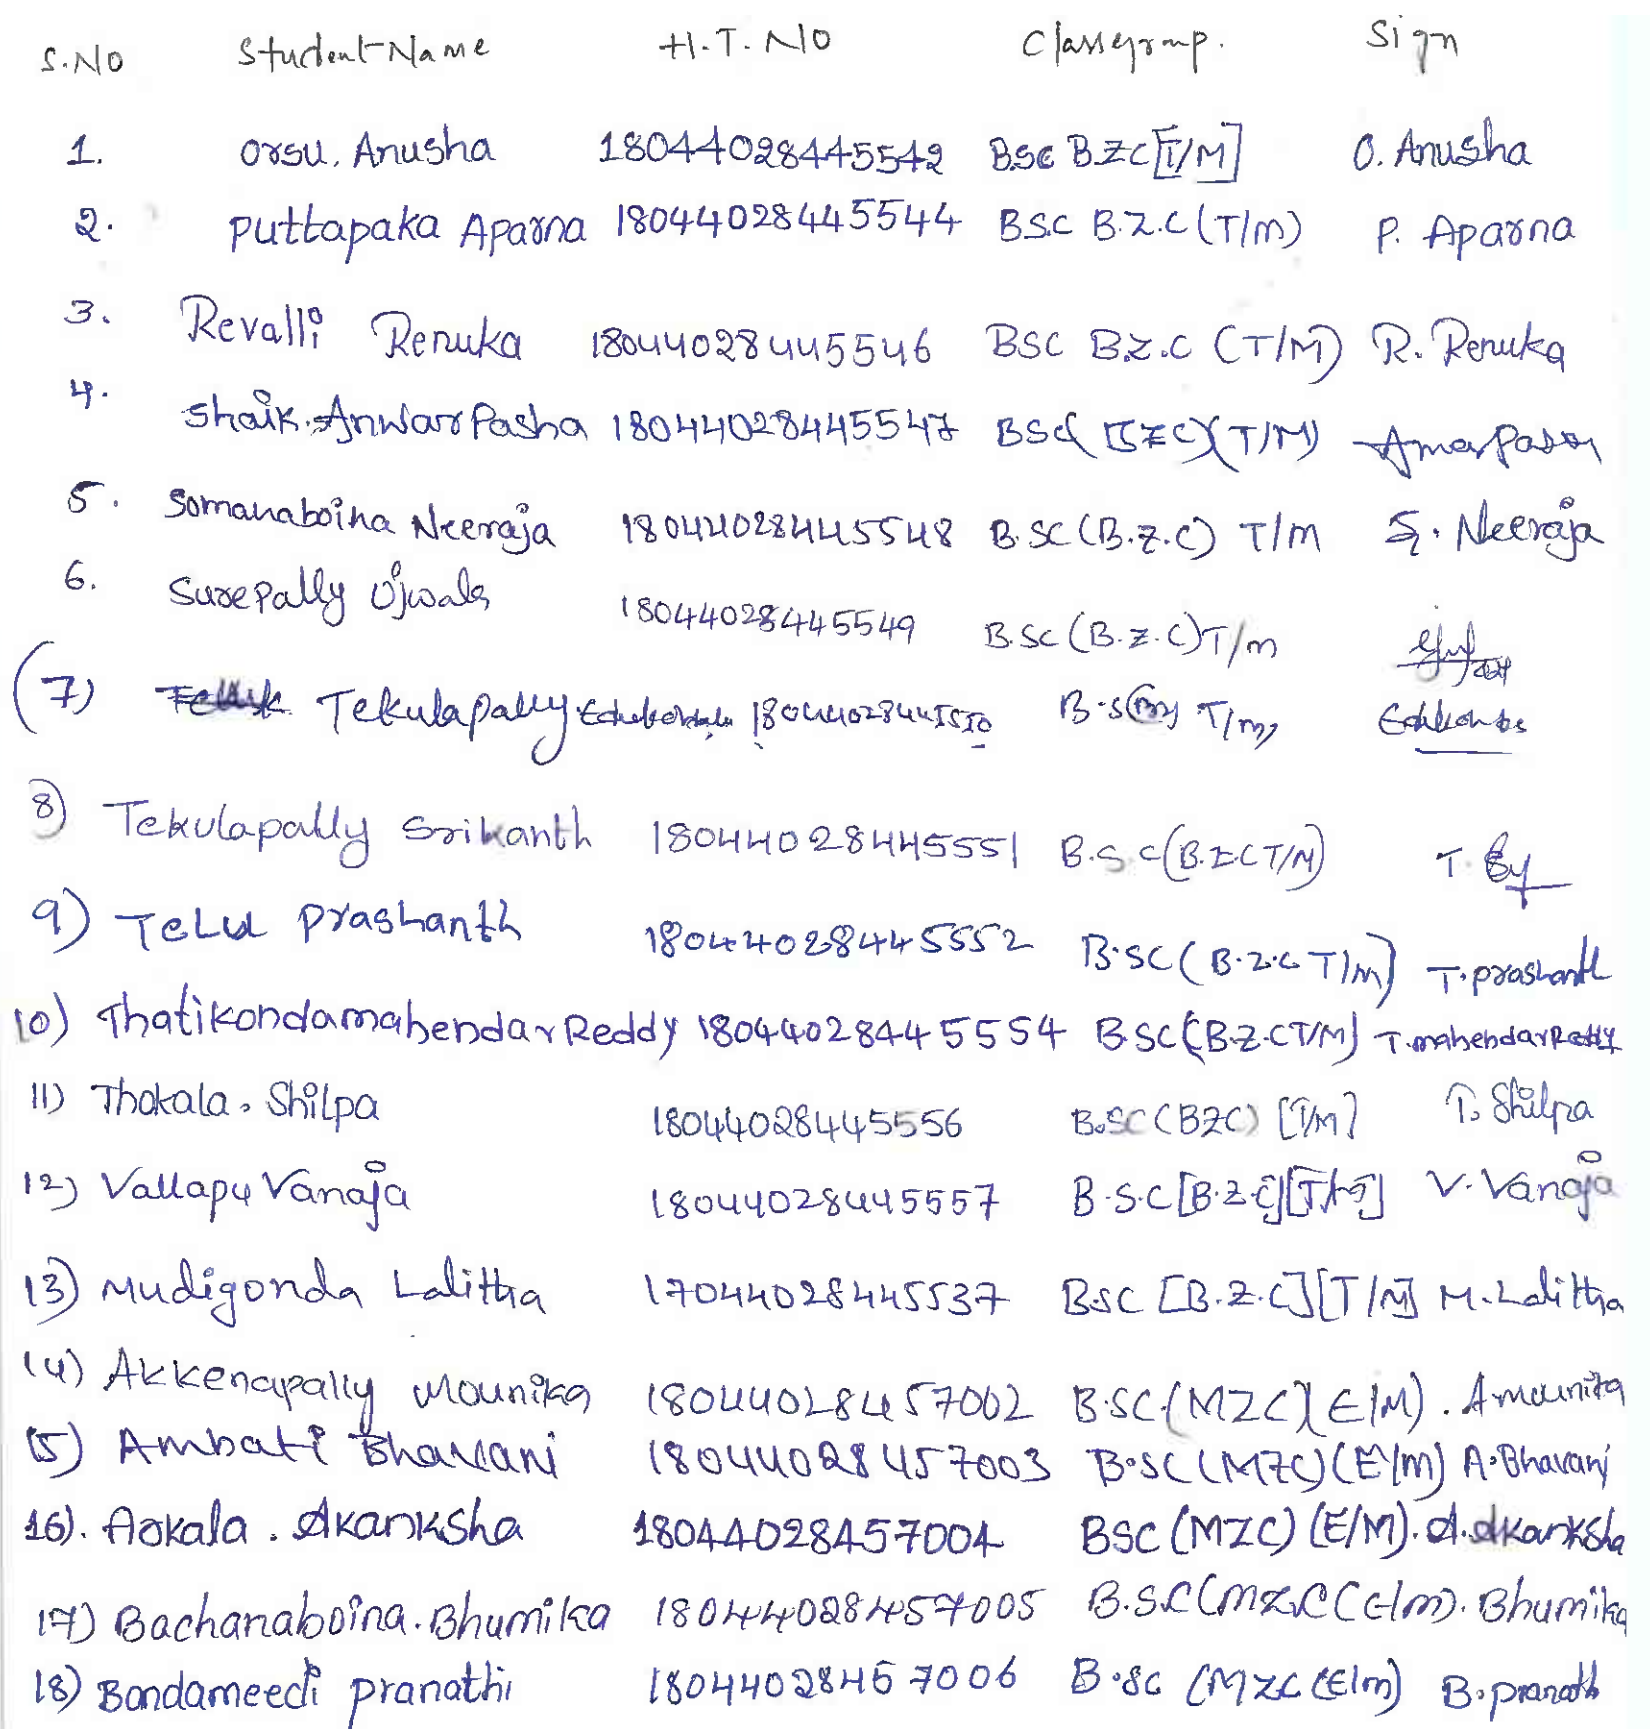 S.NO Student Name H.T.NO Class group. Sign
1. Orsu. Anusha 18044028445542 BSC BZC [T/M] O. Anusha
2. Puttapaka Aparna 18044028445544 BSC B.Z.C (T/M) P. Aparna
3. Revalli Renuka 18044028445546 BSC B.Z.C (T/M) R. Renuka
4. Shaik. Anwar Pasha 18044028445547 BSC (BZC) (T/M)
5. Somanaboina Neeraja 18044028445548 B.SC (B.Z.C) T/M S. Neeraja
6. Surepally Ujwala 18044028445549 B.SC (B.Z.C) T/m
(7) Tekulapally 18044028445550 T/m
8) Tekulapally Srikanth 18044028445551 B.S.C (B.Z.C T/M) T.
9) Telu Prashanth 18044028445552 B.SC (B.Z.C T/M) T. prashanth
10) Thatikonda mahendar Reddy 18044028445554 B.SC (B.Z.C T/M) T. mahendar Reddy
11) Thokala. Shilpa 18044028445556 B.SC (BZC) [T/M] T. Shilpa
12) Vallapu Vanaja 18044028445557 B.S.C [B.Z.C] [T/M] V. Vanaja
13) Mudigonda Lalitha 17044028445537 B.SC [B.Z.C] [T/M] M. Lalitha
14) Akkenapally Mounika 18044028457002 B.SC (MZC) (E/M). A mounika
15) Ambati Bhavani 18044028457003 B.SC (MZC) (E/M) A. Bhavani
16). Arkala. Akanksha 18044028457004 BSC (MZC) (E/M). A. Akanksha
17) Bachanaboina. Bhumika 18044028457005 B.S.C (MZC (E/m). Bhumika
18) Bandameedi pranathi 18044028457006 B.Sc (MZC (E/m) B. pranathi